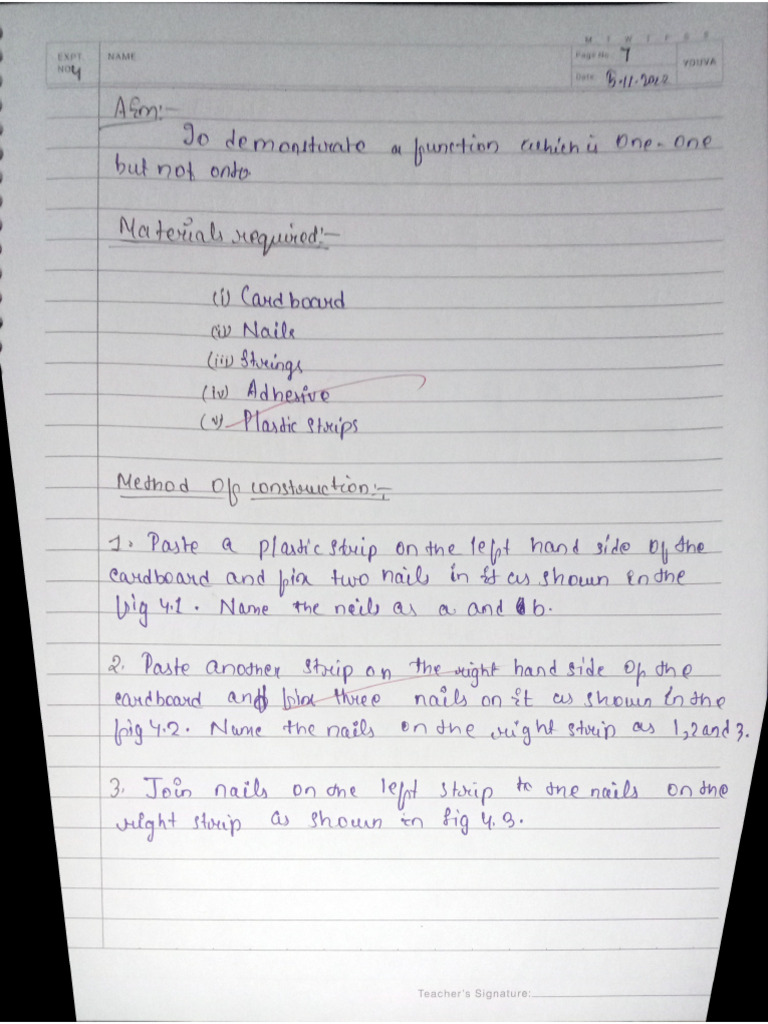 M T W T F S S
EXPT. NO. 4 NAME Page No. 7 YOUVA
Date: 5.11.2022
Aim:-
To demonstrate a function which is one-one
but not onto.
Materials required:-
(i) Cardboard
(ii) Nails
(iii) Strings
(iv) Adhesive
(v) Plastic strips
Method of construction:-
1. Paste a plastic strip on the left hand side of the
cardboard and fix two nails in it as shown in the
fig 4.1. Name the nails as a and b.
2. Paste another strip on the right hand side of the
cardboard and fix three nails on it as shown in the
fig 4.2. Name the nails on the right strip as 1,2 and 3.
3. Join nails on the left strip to the nails on the
right strip as shown in fig 4.3.
Teacher's Signature: